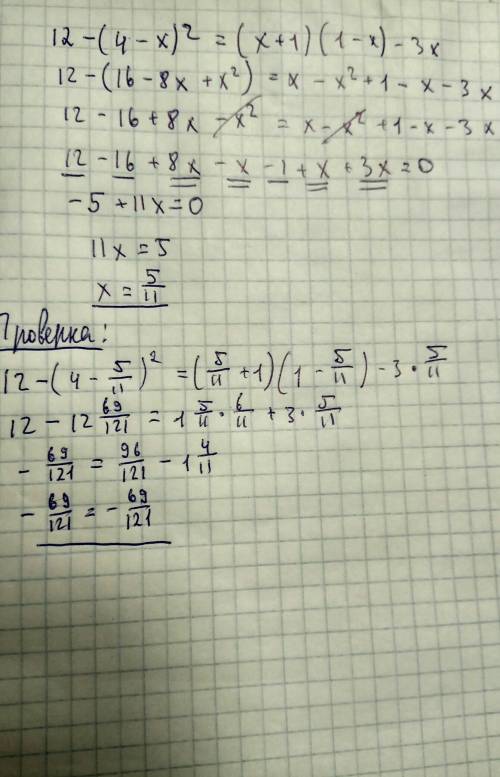 12 - (4 - x)² = (x+1)(1-x) - 3x
12 - (16 - 8x + x²) = x - x² + 1 - x - 3x
12 - 16 + 8x - x² = x - x² + 1 - x - 3x
12 - 16 + 8x - x - 1 + x + 3x = 0
-5 + 11x = 0
11x = 5
x = 5/11
Проверка:
12 - (4 - 5/11)² = (5/11 + 1)(1 - 5/11) - 3 · 5/11
12 - 12 69/121 = 1 5/11 · 6/11 + 3 · 5/11
- 69/121 = 96/121 - 1 4/11
- 69/121 = - 69/121